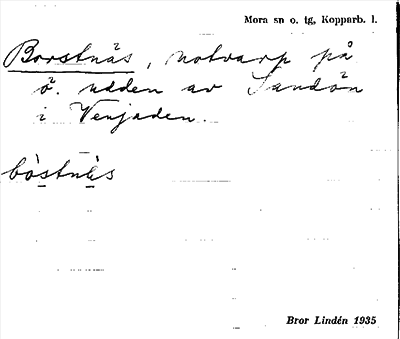 Mora sn o. tg, Kopparb. l.
Borstnäs, notvarp på
ö. udden av Sandön
i Venjaden.
bòstnès
Bror Lindén 1935